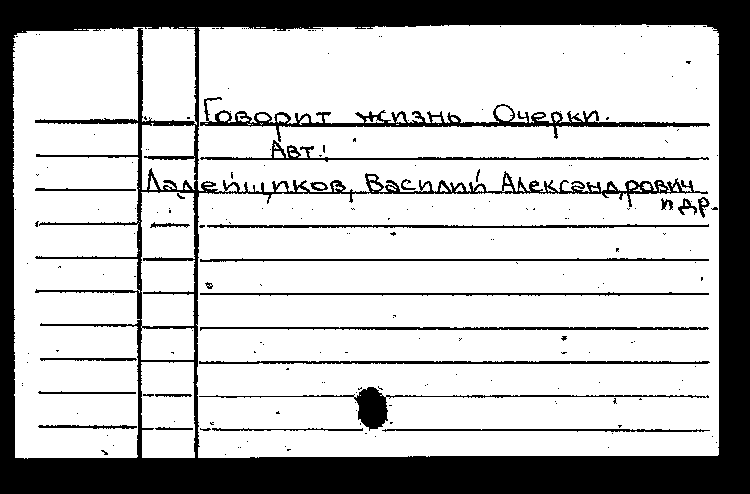 Говорит жизнь Очерки.
Авт.:
Ладейщиков, Василий Александрович
и др.